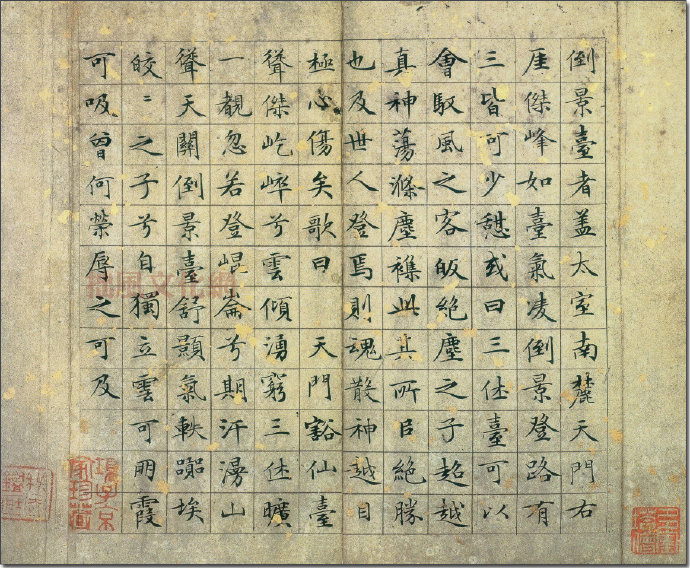 倒景臺者蓋太室南麓天門右
厓傑峰如臺氣凌倒景登路有
三皆可少憇或曰三休臺可以
會馭風之客皈絕塵之子超越
真神蕩滌塵襍此其所㠯絕勝
也及世人登焉則魂散神越目
極心傷矣歌曰 天門豁仙臺
聳傑屹崒兮雲傾湧窮三休曠
一覩忽若登崐崙兮期汗漫山
聳天關倒景臺舒顥氣軼嚻埃
皎〻之子兮自獨立雲可朋霞
可吸曾何榮辱之可及
項子京家珍藏